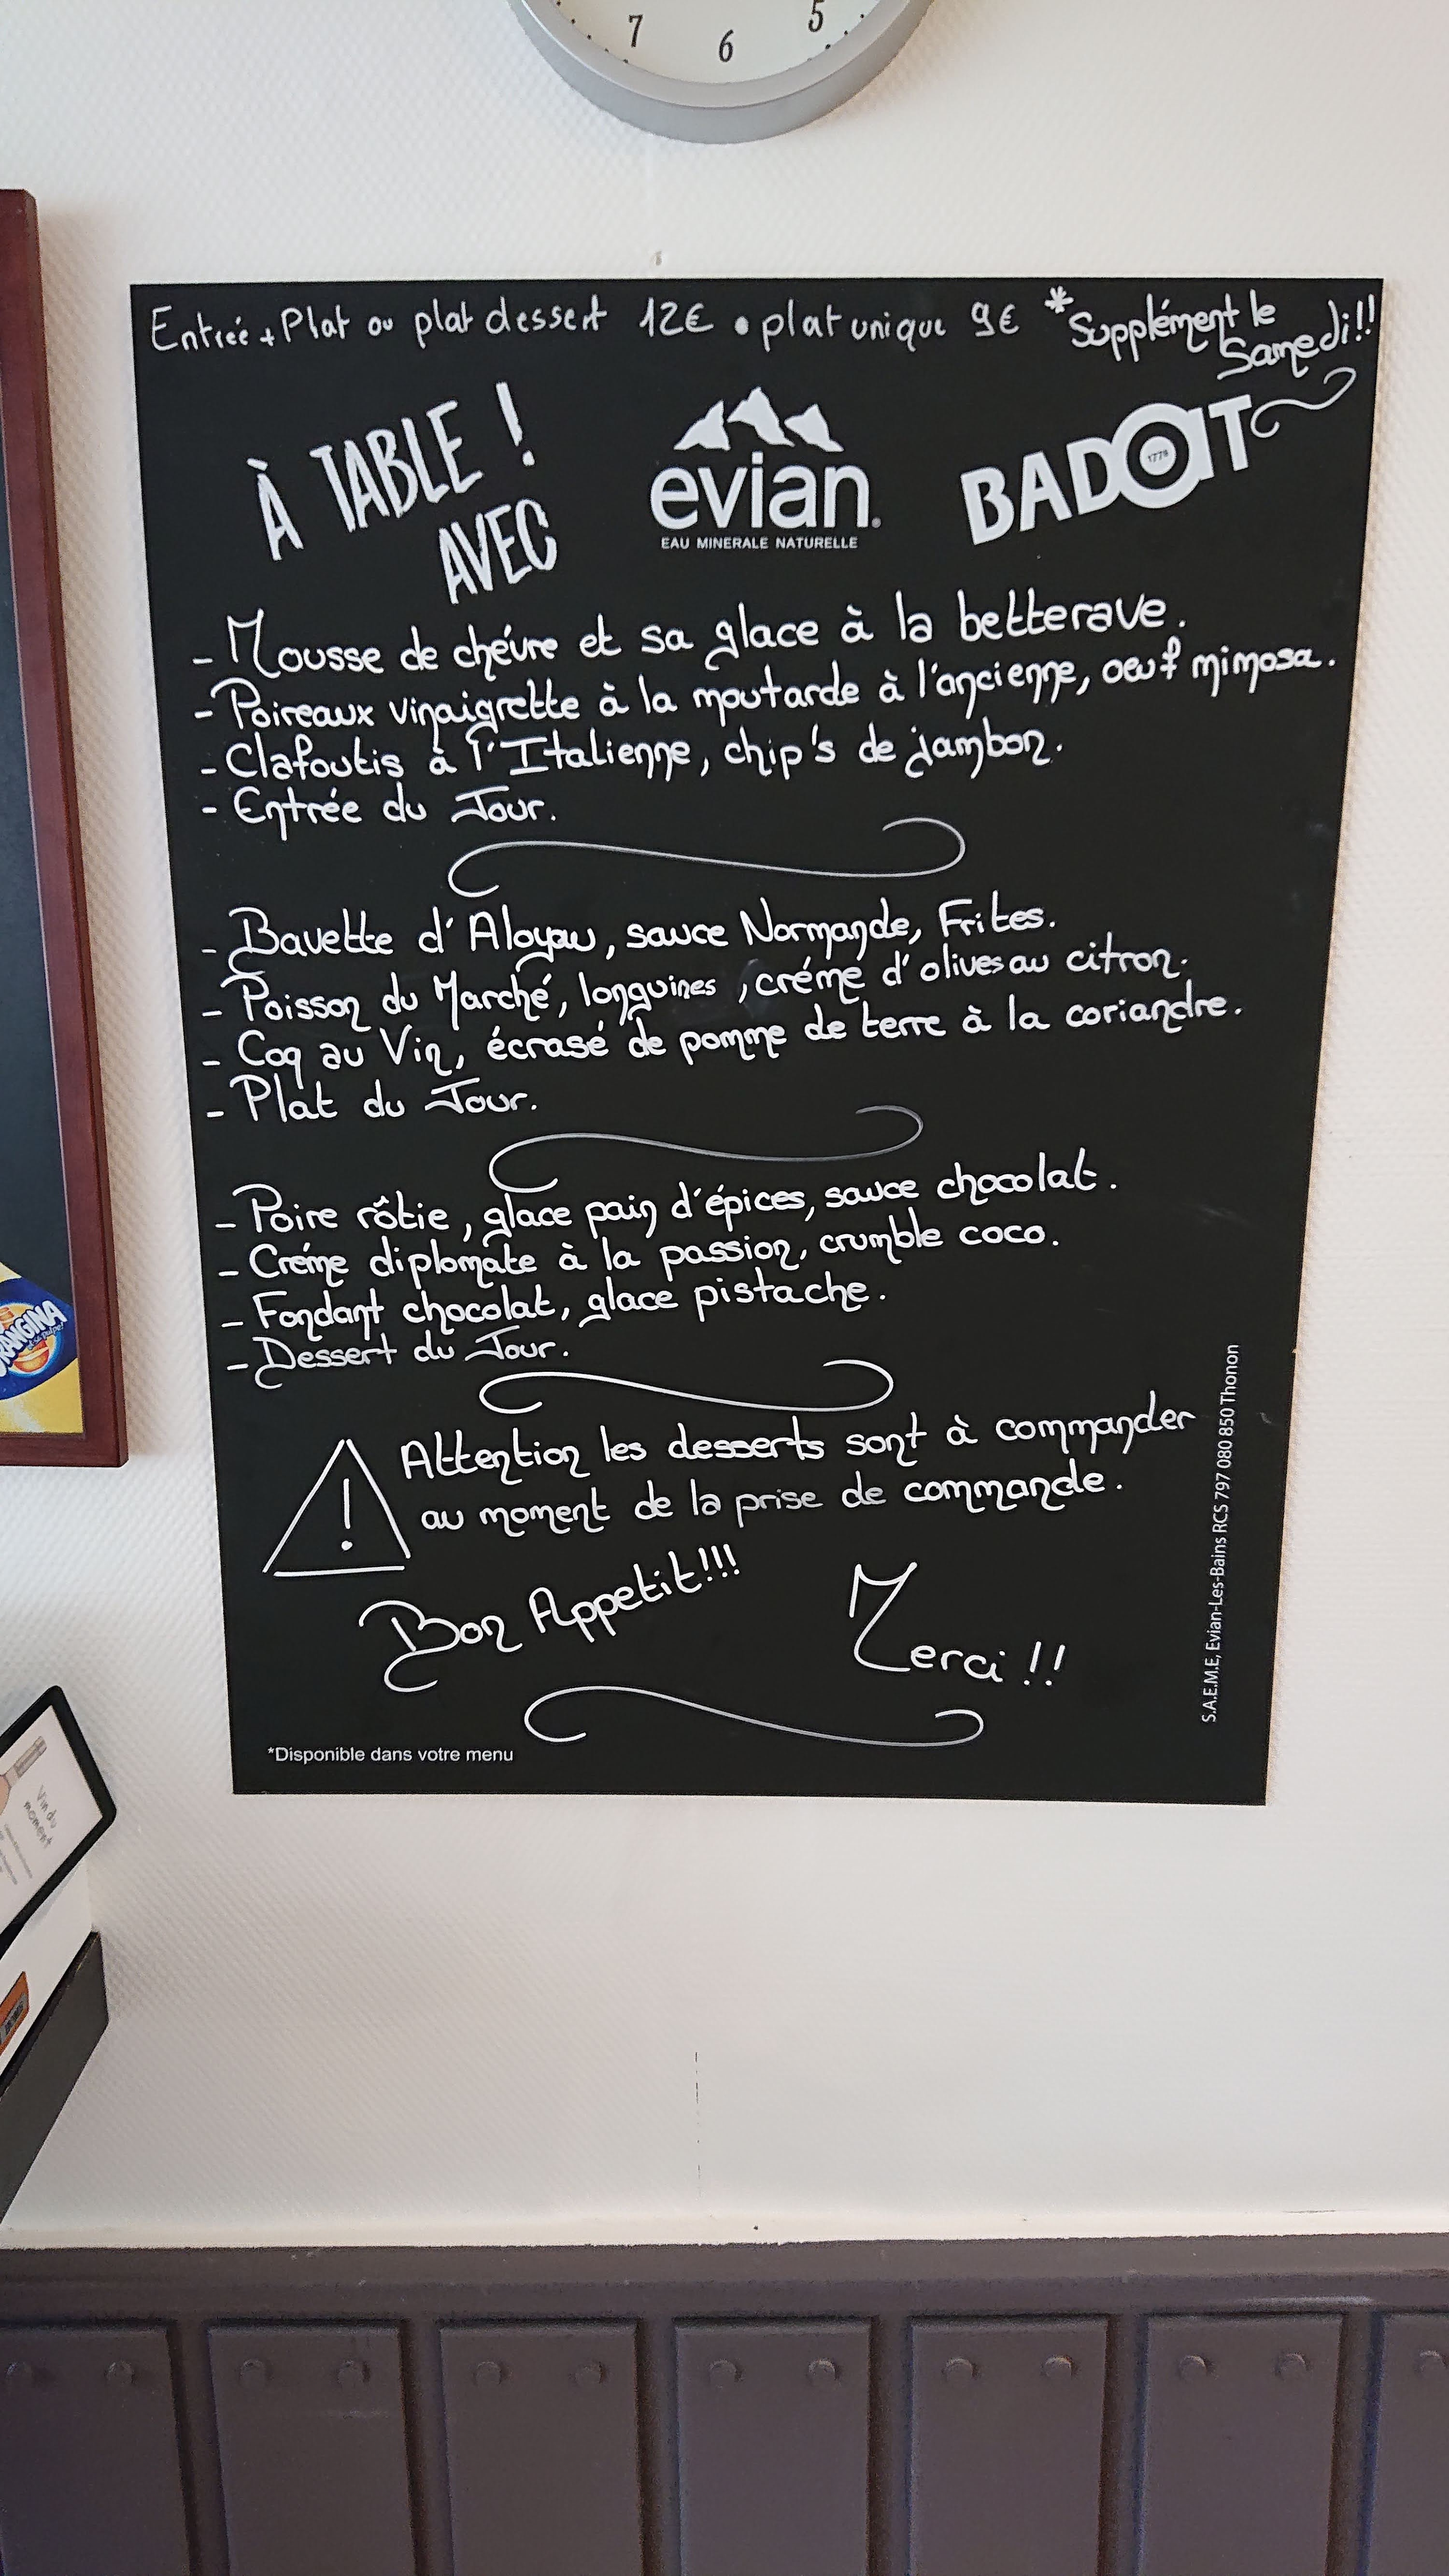 7 6 5
Entrée + Plat ou plat dessert 12€ • plat unique 9€ *Supplément le
Samedi!!
À TABLE !
AVEC
evian.
EAU MINERALE NATURELLE
BADOIT
1778
- Mousse de chévre et sa glace à la betterave.
- Poireaux vinaigrette à la moutarde à l'ancienne, oeuf mimosa.
- Clafoutis à l'Italienne, chip's de jambon.
- Entrée du Jour.
- Bavette d'Aloyau, sauce Normande, Frites.
- Poisson du Marché, longuines, créme d'olives au citron.
- Coq au Vin, écrasé de pomme de terre à la coriandre.
- Plat du Jour.
- Poire rôtie, glace pain d'épices, sauce chocolat.
- Créme diplomate à la passion, crumble coco.
- Fondant chocolat, glace pistache.
- Dessert du Jour.
! Attention les desserts sont à commander
au moment de la prise de commande.
Bon Appetit!!!
Merci !!
*Disponible dans votre menu
S.A.E.M.E, Evian-Les-Bains RCS 797 080 850 Thonon
RANGINA
Vin du
moment